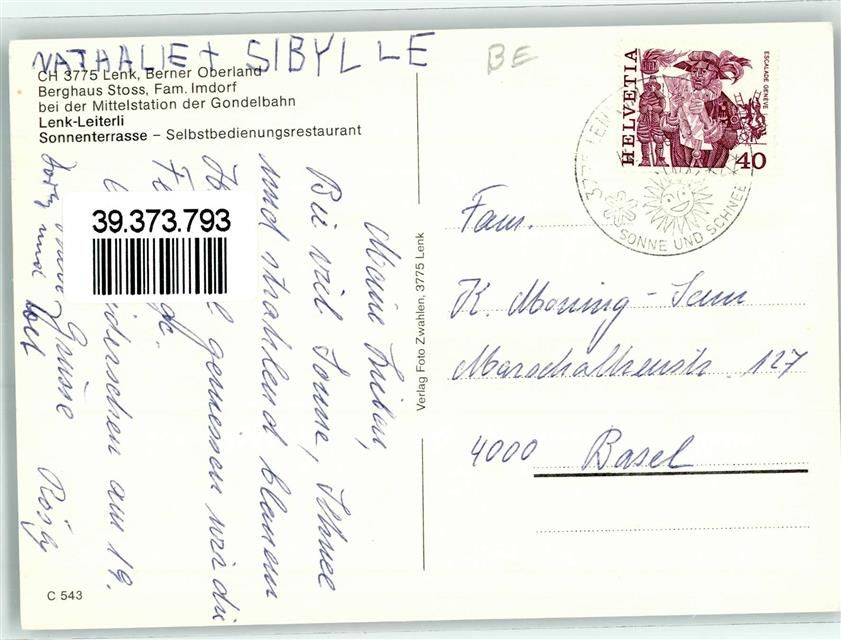 NATHALIE + SIBYLLE
BE
CH 3775 Lenk, Berner Oberland
Berghaus Stoss, Fam. Imdorf
bei der Mittelstation der Gondelbahn
Lenk-Leiterli
Sonnenterrasse – Selbstbedienungsrestaurant
Meine Lieben,
Bei viel Sonne, Schnee
und strahlend blauem
geniessen wir die
am 19.
Grüsse
und
Rösy
39.373.793
C 543
Verlag Foto Zwahlen, 3775 Lenk
HELVETIA
ESCALADE, GENÈVE
40
3775 LENK
SONNE UND SCHNEE
Fam.
K. Moning-Senn
Marschalkenstr. 127
4000 Basel